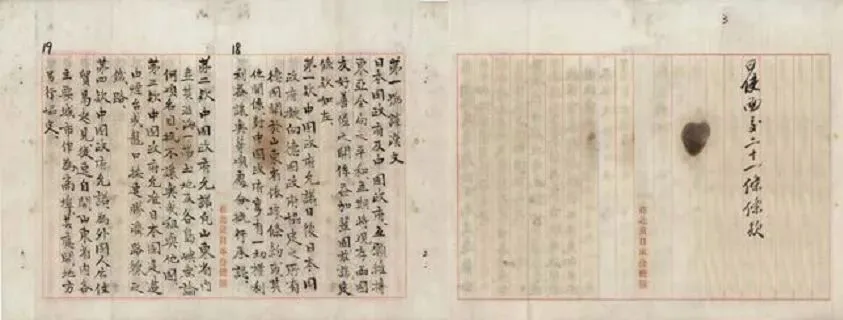 3
日使面交二十一條條款
18
第一號譯漢文
日本國政府及中國政府互願維持
東亞全局之平和並期將現存兩國
友好善鄰之關係益加鞏固茲議定
條款如左
第一款中國政府允諾日後日本國
政府擬向德國政府協定之所有
德國關於山東省依據條約或其
他關係對中國政府享有一切權利
利益讓與等項處分概行承認
19
第二款中國政府允諾凡山東省內
並其沿海一帶土地及各島嶼無論
何項名目概不讓與或租與他國
第三款中國政府允准日本國建造
由煙台或龍口接連膠濟路線之
鐵路
第四款中國政府允諾為外國人居住
貿易起見從速自開山東省內各
主要城市作為商埠其應開地方
另行協定